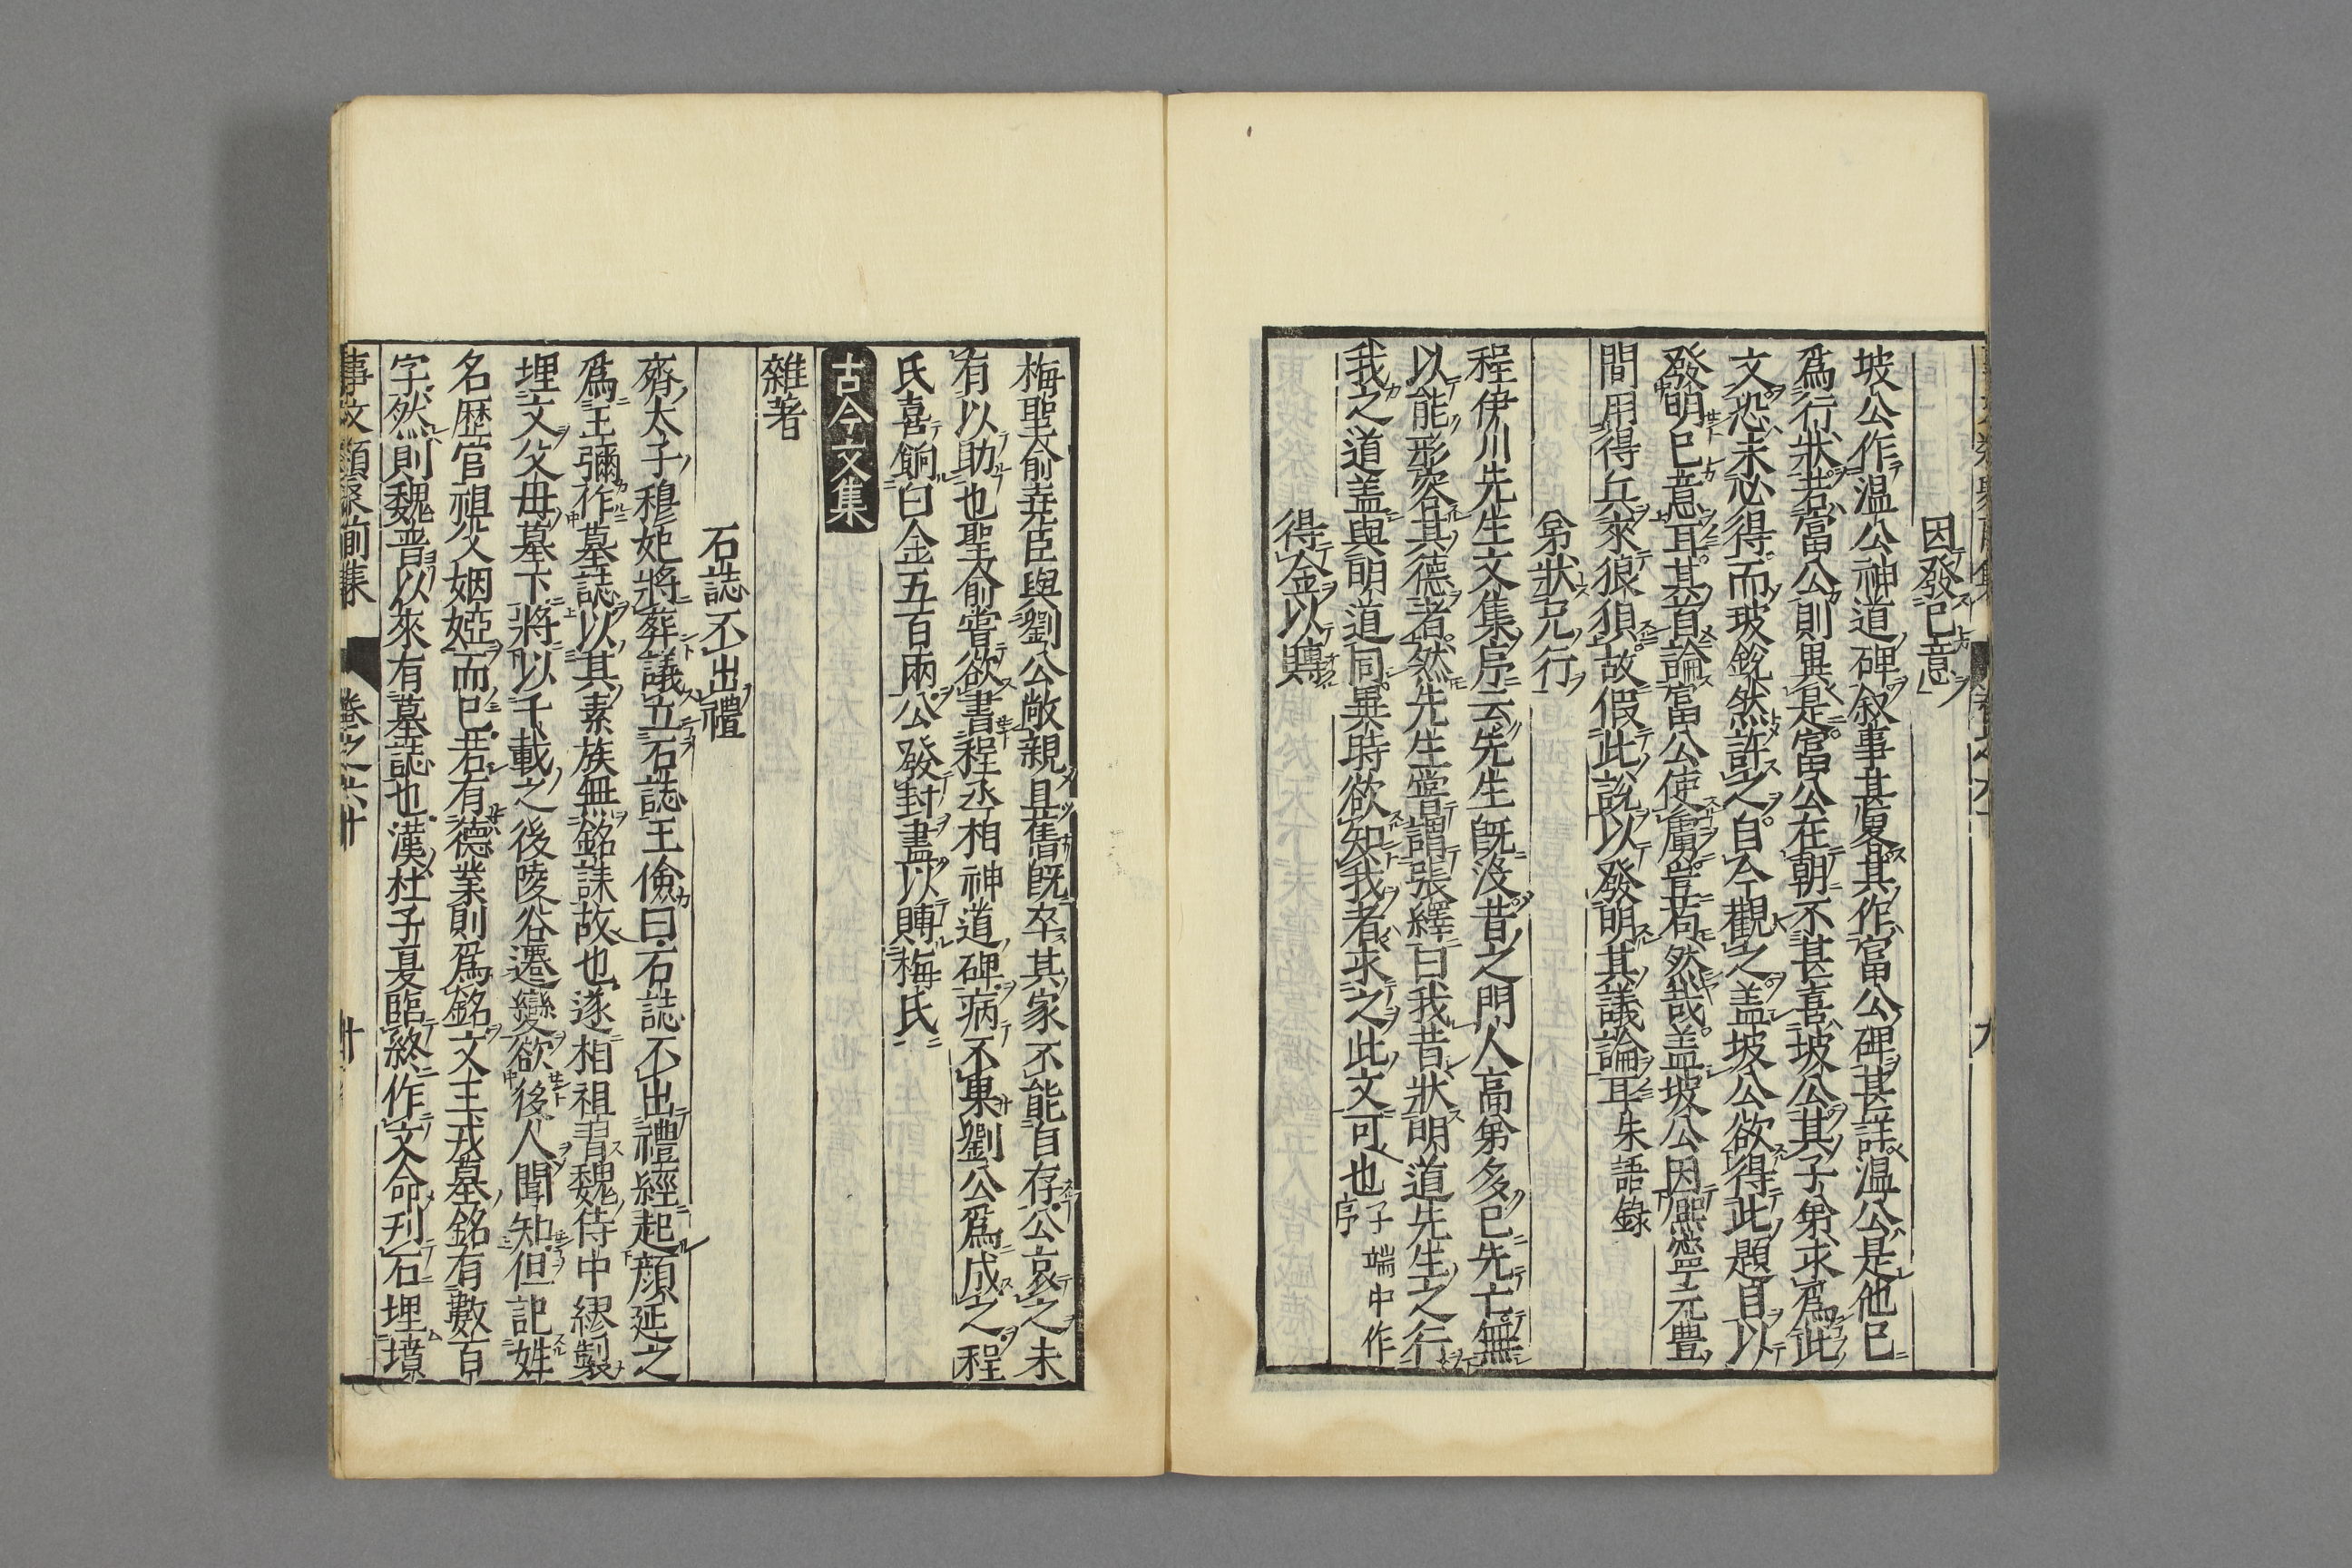 因發己意
坡公作温公神道碑叙事甚畧其作富公碑甚詳温公是他已
爲行狀若富公則異是富公在朝不甚喜坡公其子弟求爲此
文恐未必得而坡銳然許之自今觀之盖坡公欲得此題目以
發明已意耳其首論富公使虜豈苟然哉盖坡公因熈寧元豊
間用得兵來狼狽故假此說以發明其議論耳朱語錄
弟狀兄行
程伊川先生文集序云先生旣沒昔之門人高弟多已先亡無
以能形容其德者然先生嘗謂張繹曰我昔狀明道先生之行
我之道盖與明道同異時欲知我者求之此文可也子端中作序
得金以賻
梅聖俞堯臣與劉公敞親且舊旣卒其家不能自存公哀之未
有以助也聖俞嘗欲書程丞相神道碑病不果劉公爲成之程
氏喜餉白金五百兩公發封盡以賻梅氏
古今文集
雜著
石誌不出禮
齊太子穆妃將葬議立石誌王儉曰石誌不出禮經起顔延之
爲王彌作墓誌以其素族無銘誄故也遂相祖習魏侍中繆製
埋文父母墓下將以千載之後陵谷遷變欲後人聞知但記姓
名歷官祖父姻婭而已若有德業則爲銘文王戎墓銘有數百
字然則魏晋以來有墓誌也漢杜子夏臨終作文命刋石埋墳
事文類聚前集 卷之六十 十